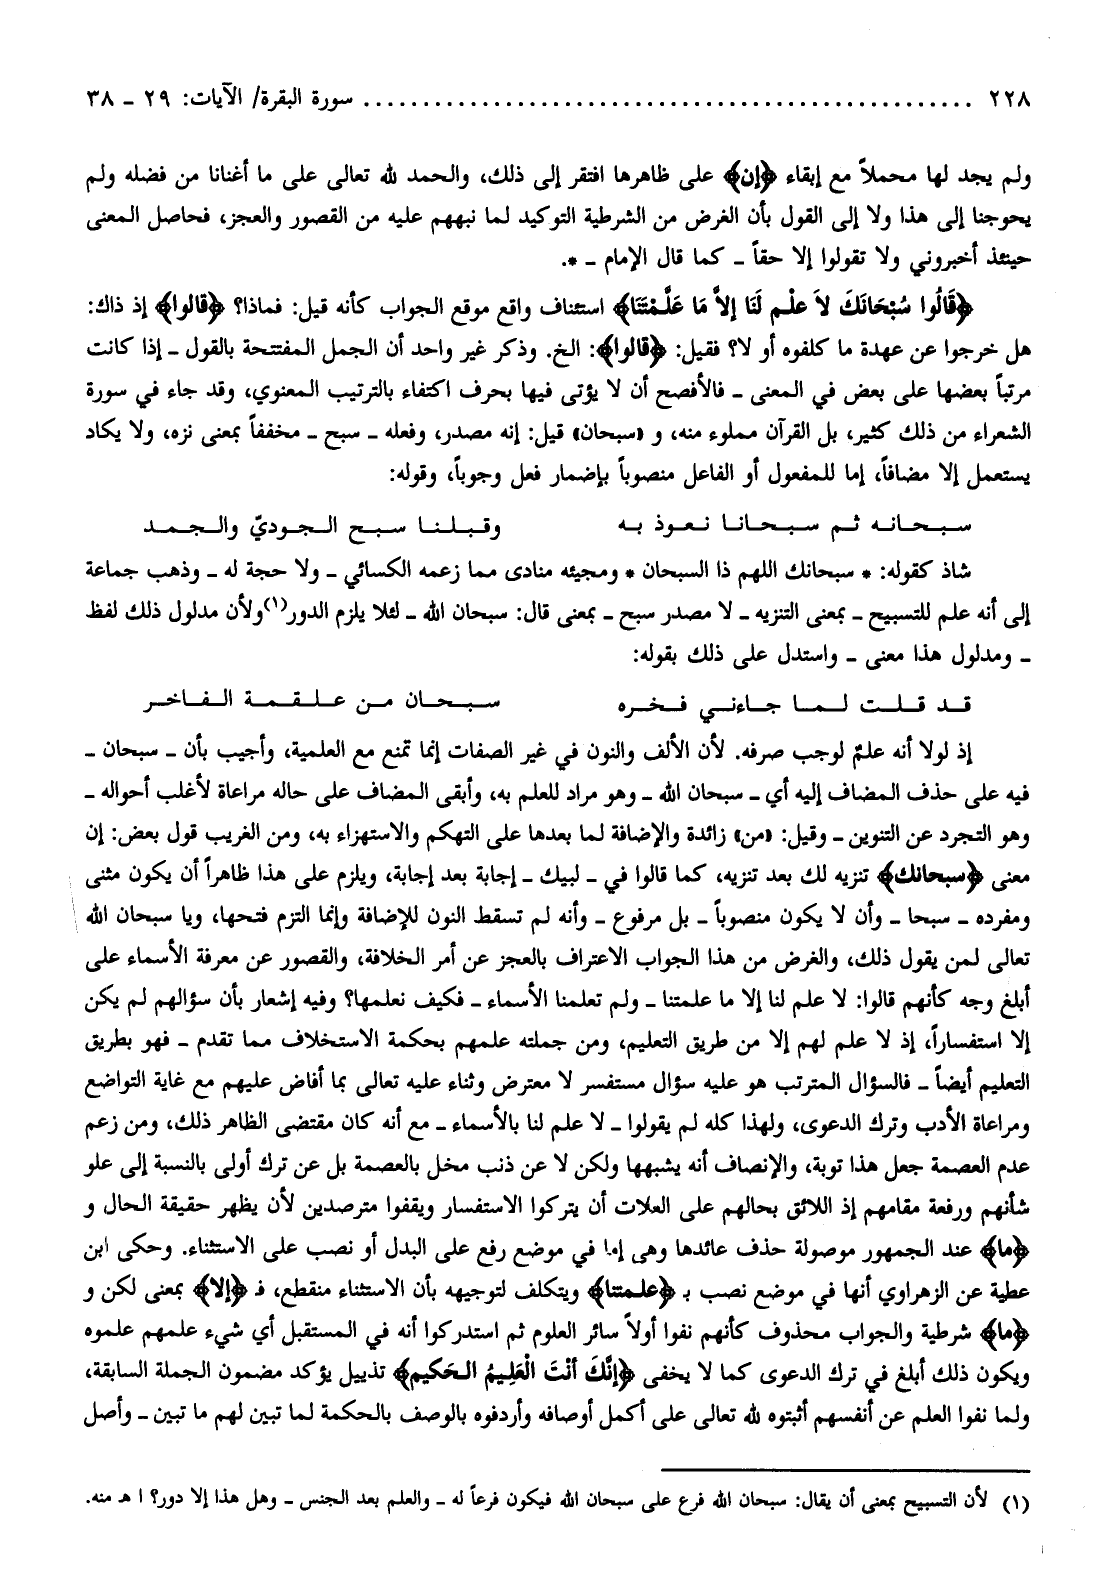 ٢٢٨ .................................................... سورة البقرة/ الآيات: ٢٩ ـ ٣٨
ولم يجد لها محملاً مع إبقاء ﴿إن﴾ على ظاهرها افتقر إلى ذلك، والحمد لله تعالى على ما أغنانا من فضله ولم
يحوجنا إلى هذا ولا إلى القول بأن الغرض من الشرطية التوكيد لما نبههم عليه من القصور والعجز، فحاصل المعنى
حينئذ أخبروني ولا تقولوا إلا حقاً ـ كما قال الإمام ـ *.
﴿قَالُوا سُبْحَانَكَ لاَ عِلْم لَنَا إلاَّ مَا عَلَّمْتَنَا﴾ استئناف واقع موقع الجواب كأنه قيل: فماذا؟ ﴿قالوا﴾ إذ ذاك:
هل خرجوا عن عهدة ما كلفوه أو لا؟ فقيل: ﴿قالوا﴾: الخ. وذكر غير واحد أن الجمل المفتتحة بالقول ـ إذا كانت
مرتباً بعضها على بعض في المعنى ـ فالأفصح أن لا يؤتى فيها بحرف اكتفاء بالترتيب المعنوي، وقد جاء في سورة
الشعراء من ذلك كثير، بل القرآن مملوء منه، و «سبحان» قيل: إنه مصدر، وفعله ـ سبح ـ مخففاً بمعنى نزه، ولا يكاد
يستعمل إلا مضافاً، إما للمفعول أو الفاعل منصوباً بإضمار فعل وجوباً، وقوله:
سبحانه ثم سبحانا نعوذ به وقبلنا سبح الجوديّ والجمد
شاذ كقوله: * سبحانك اللهم ذا السبحان * ومجيئه منادى مما زعمه الكسائي ـ ولا حجة له ـ وذهب جماعة
إلى أنه علم للتسبيح ـ بمعنى التنزيه ـ لا مصدر سبح ـ بمعنى قال: سبحان الله ـ لئلا يلزم الدور(١)ولأن مدلول ذلك لفظ
ـ ومدلول هذا معنى ـ واستدل على ذلك بقوله:
قد قلت لما جاءني فخره سبحان من علقمة الفاخر
إذ لولا أنه علمٌ لوجب صرفه. لأن الألف والنون في غير الصفات إنما تمنع مع العلمية، وأجيب بأن ـ سبحان ـ
فيه على حذف المضاف إليه أي ـ سبحان الله ـ وهو مراد للعلم به، وأبقى المضاف على حاله مراعاة لأغلب أحواله ـ
وهو التجرد عن التنوين ـ وقيل: «من» زائدة والإضافة لما بعدها على التهكم والاستهزاء به، ومن الغريب قول بعض: إن
معنى ﴿سبحانك﴾ تنزيه لك بعد تنزيه، كما قالوا في ـ لبيك ـ إجابة بعد إجابة، ويلزم على هذا ظاهراً أن يكون مثنى
ومفرده ـ سبحا ـ وأن لا يكون منصوباً ـ بل مرفوع ـ وأنه لم تسقط النون للإضافة وإنما التزم فتحها، ويا سبحان الله
تعالى لمن يقول ذلك، والغرض من هذا الجواب الاعتراف بالعجز عن أمر الخلافة، والقصور عن معرفة الأسماء على
أبلغ وجه كأنهم قالوا: لا علم لنا إلا ما علمتنا ـ ولم تعلمنا الأسماء ـ فكيف نعلمها؟ وفيه إشعار بأن سؤالهم لم يكن
إلا استفساراً، إذ لا علم لهم إلا من طريق التعليم، ومن جملته علمهم بحكمة الاستخلاف مما تقدم ـ فهو بطريق
التعليم أيضاً ـ فالسؤال المترتب هو عليه سؤال مستفسر لا معترض وثناء عليه تعالى بما أفاض عليهم مع غاية التواضع
ومراعاة الأدب وترك الدعوى، ولهذا كله لم يقولوا ـ لا علم لنا بالأسماء ـ مع أنه كان مقتضى الظاهر ذلك، ومن زعم
عدم العصمة جعل هذا توبة، والإنصاف أنه يشبهها ولكن لا عن ذنب مخل بالعصمة بل عن ترك أولى بالنسبة إلى علو
شأنهم ورفعة مقامهم إذ اللائق بحالهم على العلات أن يتركوا الاستفسار ويقفوا مترصدين لأن يظهر حقيقة الحال و
﴿ما﴾ عند الجمهور موصولة حذف عائدها وهى إما في موضع رفع على البدل أو نصب على الاستثناء. وحكى ابن
عطية عن الزهراوي أنها في موضع نصب بـ ﴿علمتنا﴾ ويتكلف لتوجيهه بأن الاستثناء منقطع، فـ ﴿إلا﴾ بمعنى لكن و
﴿ما﴾ شرطية والجواب محذوف كأنهم نفوا أولاً سائر العلوم ثم استدركوا أنه في المستقبل أي شيء علمهم علموه
ويكون ذلك أبلغ في ترك الدعوى كما لا يخفى ﴿إنَّكَ أنْتَ الْعَلِيمُ الحَكيم﴾ تذييل يؤكد مضمون الجملة السابقة،
ولما نفوا العلم عن أنفسهم أثبتوه لله تعالى على أكمل أوصافه وأردفوه بالوصف بالحكمة لما تبين لهم ما تبين ـ وأصل
(١) لأن التسبيح بمعنى أن يقال: سبحان الله فرع على سبحان الله فيكون فرعاً له ـ والعلم بعد الجنس ـ وهل هذا إلا دور؟ ا هـ منه.